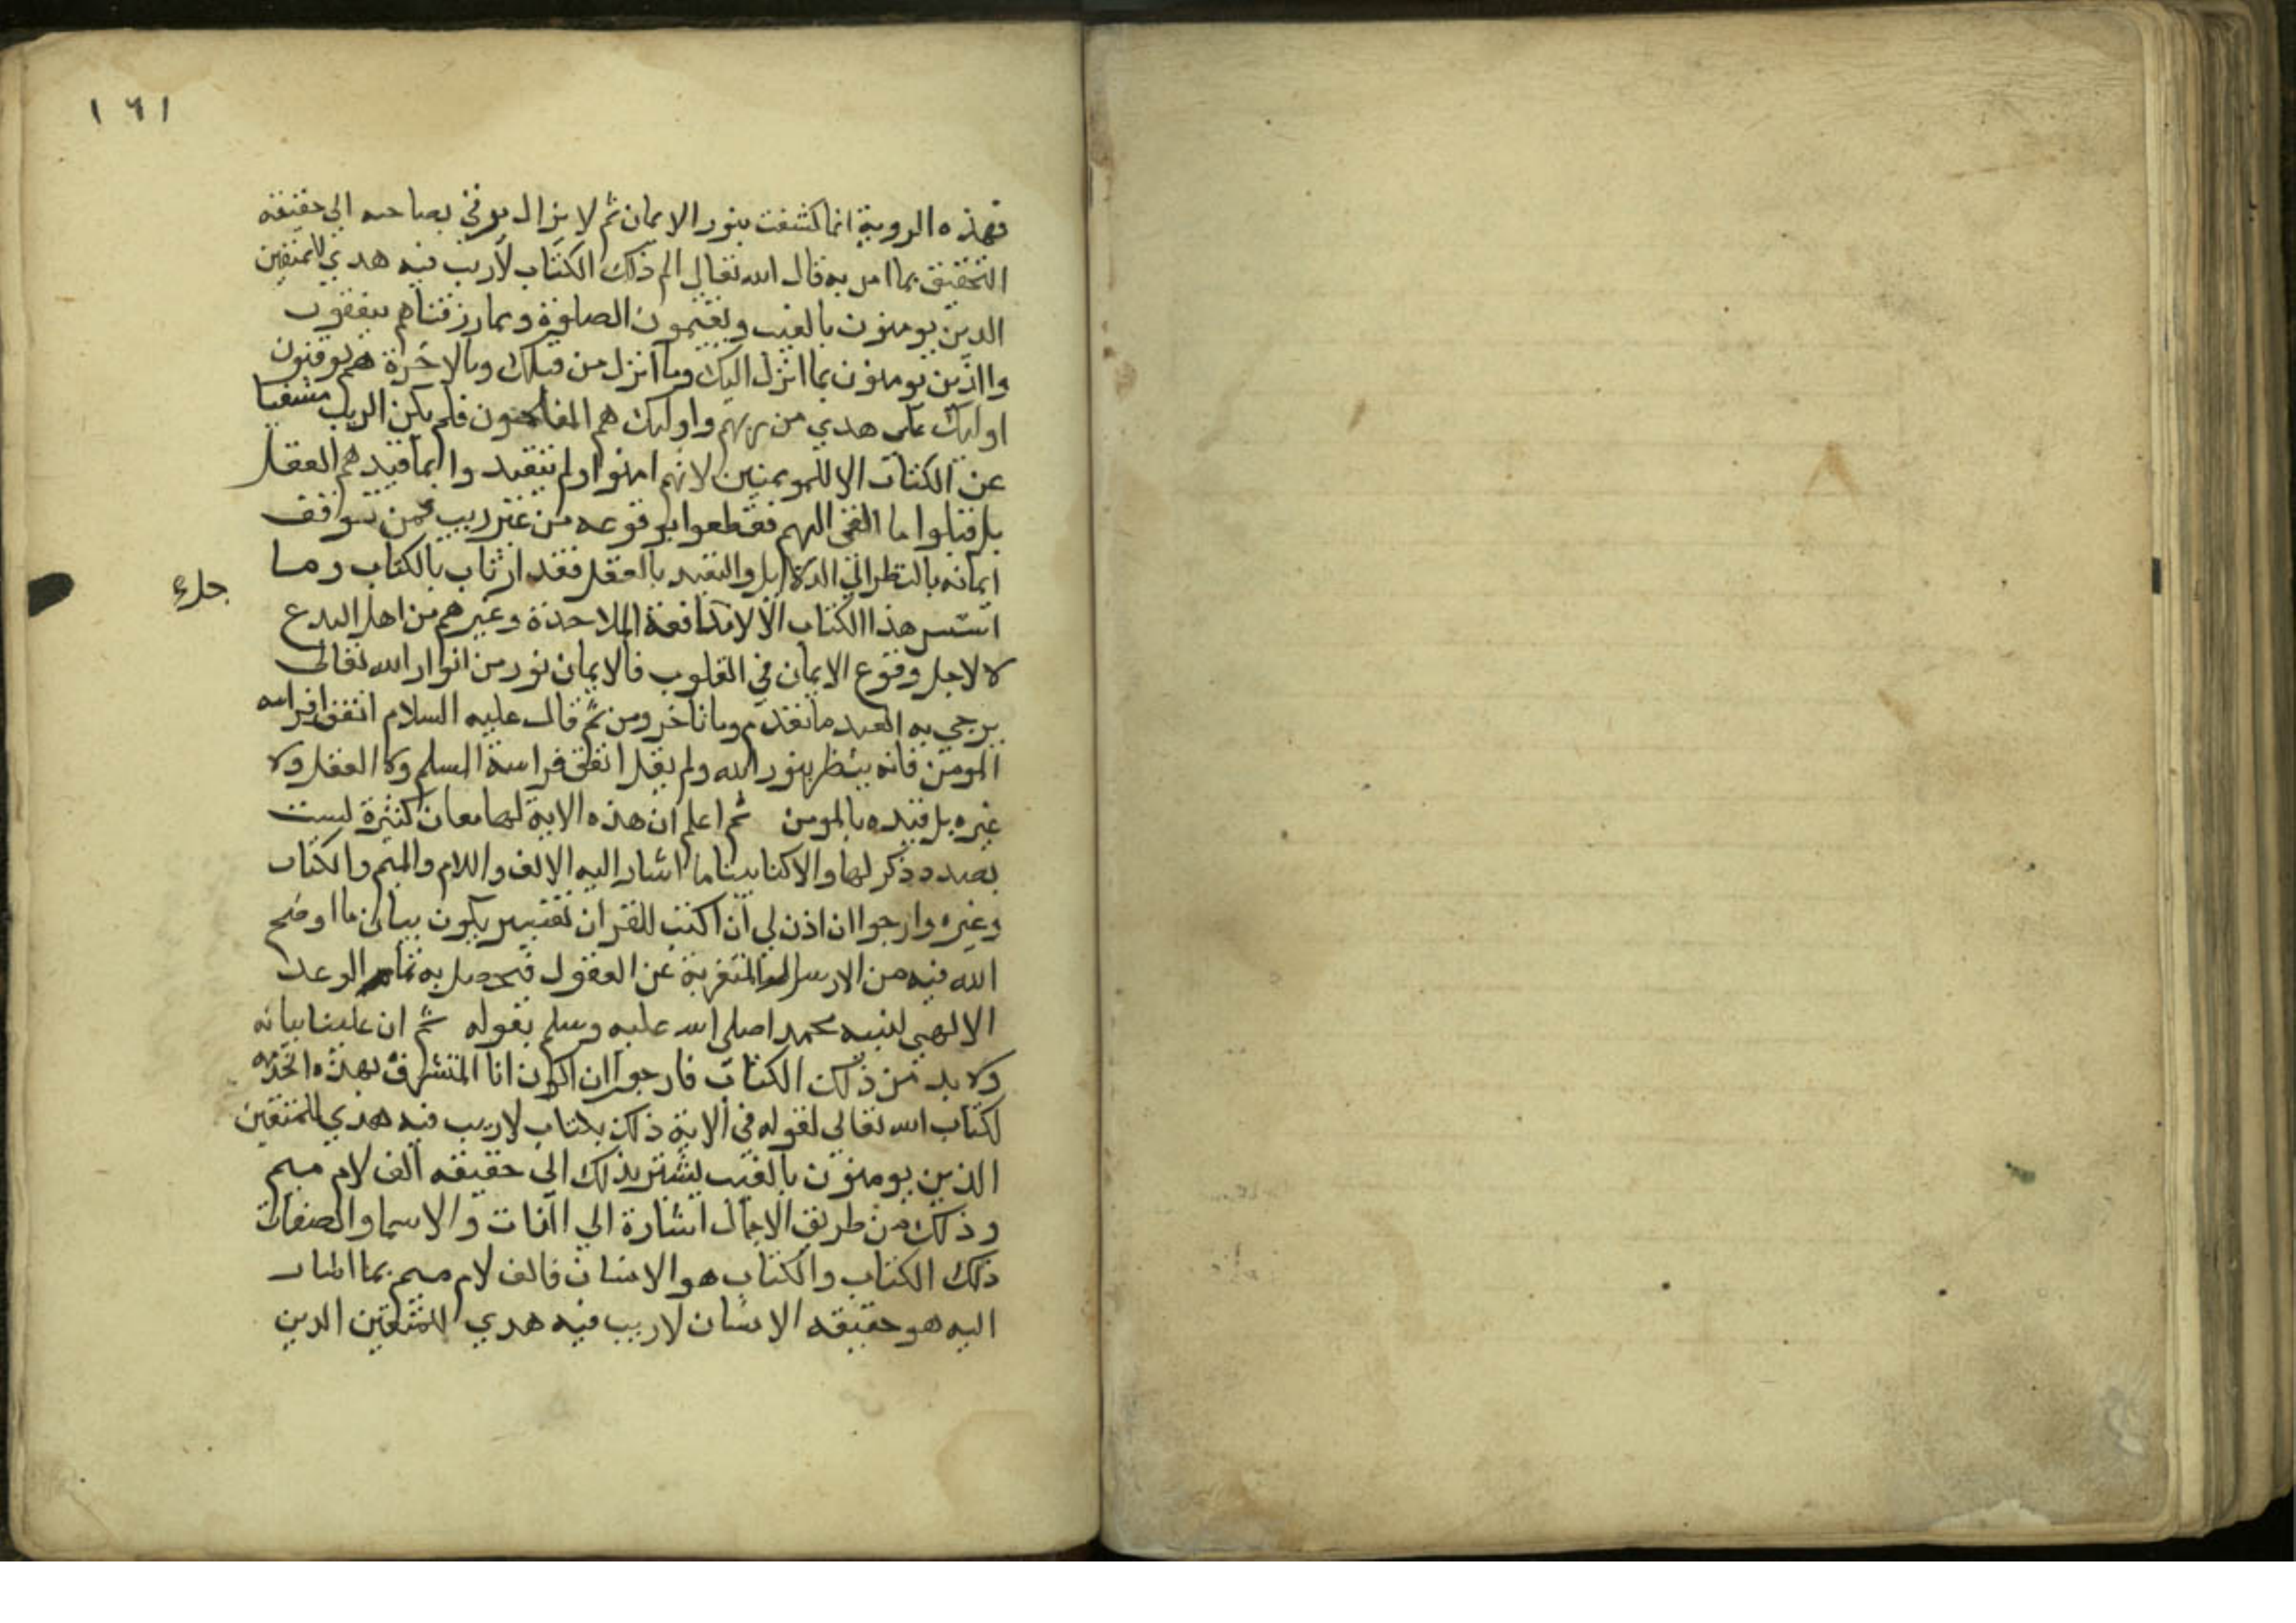 ١٦١
فهذه الروية انما كشفت بنور الايمان ثم لا يزال يوفي بصاحبه الي حقيقة
التحقيق بما امن به قال الله تعالي الم ذلك الكتاب لا ريب فيه هدي للمتقين
الذين يومنون بالغيب ويقيمون الصلوة ومما رزقناهم ينفقون
والذين يومنون بما انزل اليك وما انزل من قبلك وبالاخرة هم يوقنون
اوليك علي هدي من ربهم واوليك هم المفلحون فلم يكن الريب منتفيا
عن الكتاب الا للمومنين لانهم امنوا ولم يتقيد وا بما قيدهم العقل
بل قبلوا ما القي اليهم فقطعوا بوقوعه من غير ريب فمن توقف
ايمانه بالنظر الي الدلايل والتقيد بالعقل فقد ارتاب بالكتاب وما
اسس هذا الكتاب الا لمدافعة الملاحدة وغيرهم من اهل البدع
لا لاجل وقوع الايمان في القلوب فالايمان نور من انوار الله تعالي
يرجي به العبد ما تقدم وما تاخر ومن ثم قال عليه السلام اتقوا فراسه
المومن فانه ينظر بنور الله ولم يقل اتقوا فراسة المسلم ولا العقل ولا
غيره بل قيده بالمومن ثم اعلم ان هذه الاية لها معان كثيرة ليست
بصدد ذكر لها والا كتابيناما اشار اليه الالف واللام والميم والكتاب
وغيره وارجوا ان اذن لي ان اكتب للقران تفسير يكون بيان ما اوضح
الله فيه من الاسرار المتغربة عن العقول فيحصل به تمام الوعد
الالهي لنبيه محمدا صلي الله عليه وسلم بقوله ثم ان علينا بيانه
ولا بد من ذلك الكتاب فارجوا ان اكون انا المتشرف بهذه الخدمه
لكتاب الله تعالي لقوله في الاية ذلك بكتاب لا ريب فيه هدي للمتقين
الذين يومنون بالغيب يشير بذلك الي حقيقه الف لام ميم
وذلك من طريق الاجمال اشارة الي الذات والاسما والصفات
ذلك الكتاب والكتاب هو الانسان فالف لام ميم بما اشار
اليه هو حقيقه الانسان لا ريب فيه هدي للمتقين الذين